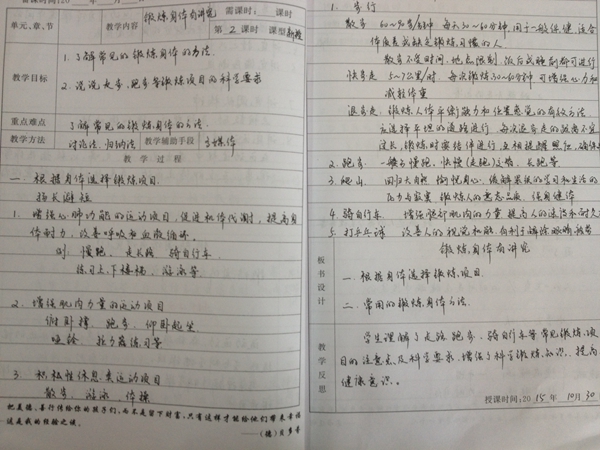 单元,章,节
教学内容
锻炼身体有讲究
需课时: 课时
第 2 课时 课型 新授
教学目标
1. 了解常见的锻炼身体的方法.
2. 说说走步、跑步等锻炼项目的科学要求
重点难点
了解常见的锻炼身体的方法.
教学方法
讨论法、归纳法
教学辅助手段
多媒体
教 学 过 程
一. 根据身体选择锻炼项目.
扬长避短
1. 增强心肺功能的运动项目,促进机体代谢,提高身
体耐力,改善呼吸和血液循环。
例: 慢跑、走长路 骑自行车
练习上下楼梯、游泳等
2. 增强肌肉力量的运动项目
俯卧撑、跑步、仰卧起坐
哑铃、拉力器练习等
3. 积极性休息类运动项目
散步、游泳、体操
把美德、善行传给你的孩子们,而不是留下财富,只有这样才能给他们带来幸福
这是我的经验之谈。
——(德)贝多芬
1. 步行
散步 60~90步/分钟 每天30~60分钟,用于一般保健,适合
体质差或缺乏锻炼习惯的人
散步不受时间、地点限制,饭后或睡前都可进行
快步走 5~7公里/时. 每次锻炼30~60分钟 可增强心力和
减轻体重
退步走: 锻炼人体平衡能力和位置感觉的有效方法.
应选择平坦的道路进行
2. 跑步. 一般为慢跑,快慢(走跑)交替、长跑等
3. 爬山. 回归大自然 愉悦身心、缓解紧张的学习和生活的
压力与寂寞 锻炼人的意志品质、强身健体
4. 骑自行车. 增强腿部肌肉的力量 提高人的灵活和耐久
5. 打乒乓球 改善人的视觉机能,有利于解除眼睛疲劳
板书设计
锻炼身体有讲究
一. 根据身体选择锻炼项目.
二. 常用的锻炼身体方法.
教学反思
学生理解了走路、跑步、骑自行车等常见锻炼项
目的注意点及科学要求、增强了科学锻炼知识、提高
健康意识。
授课时间:2015年 10月 30